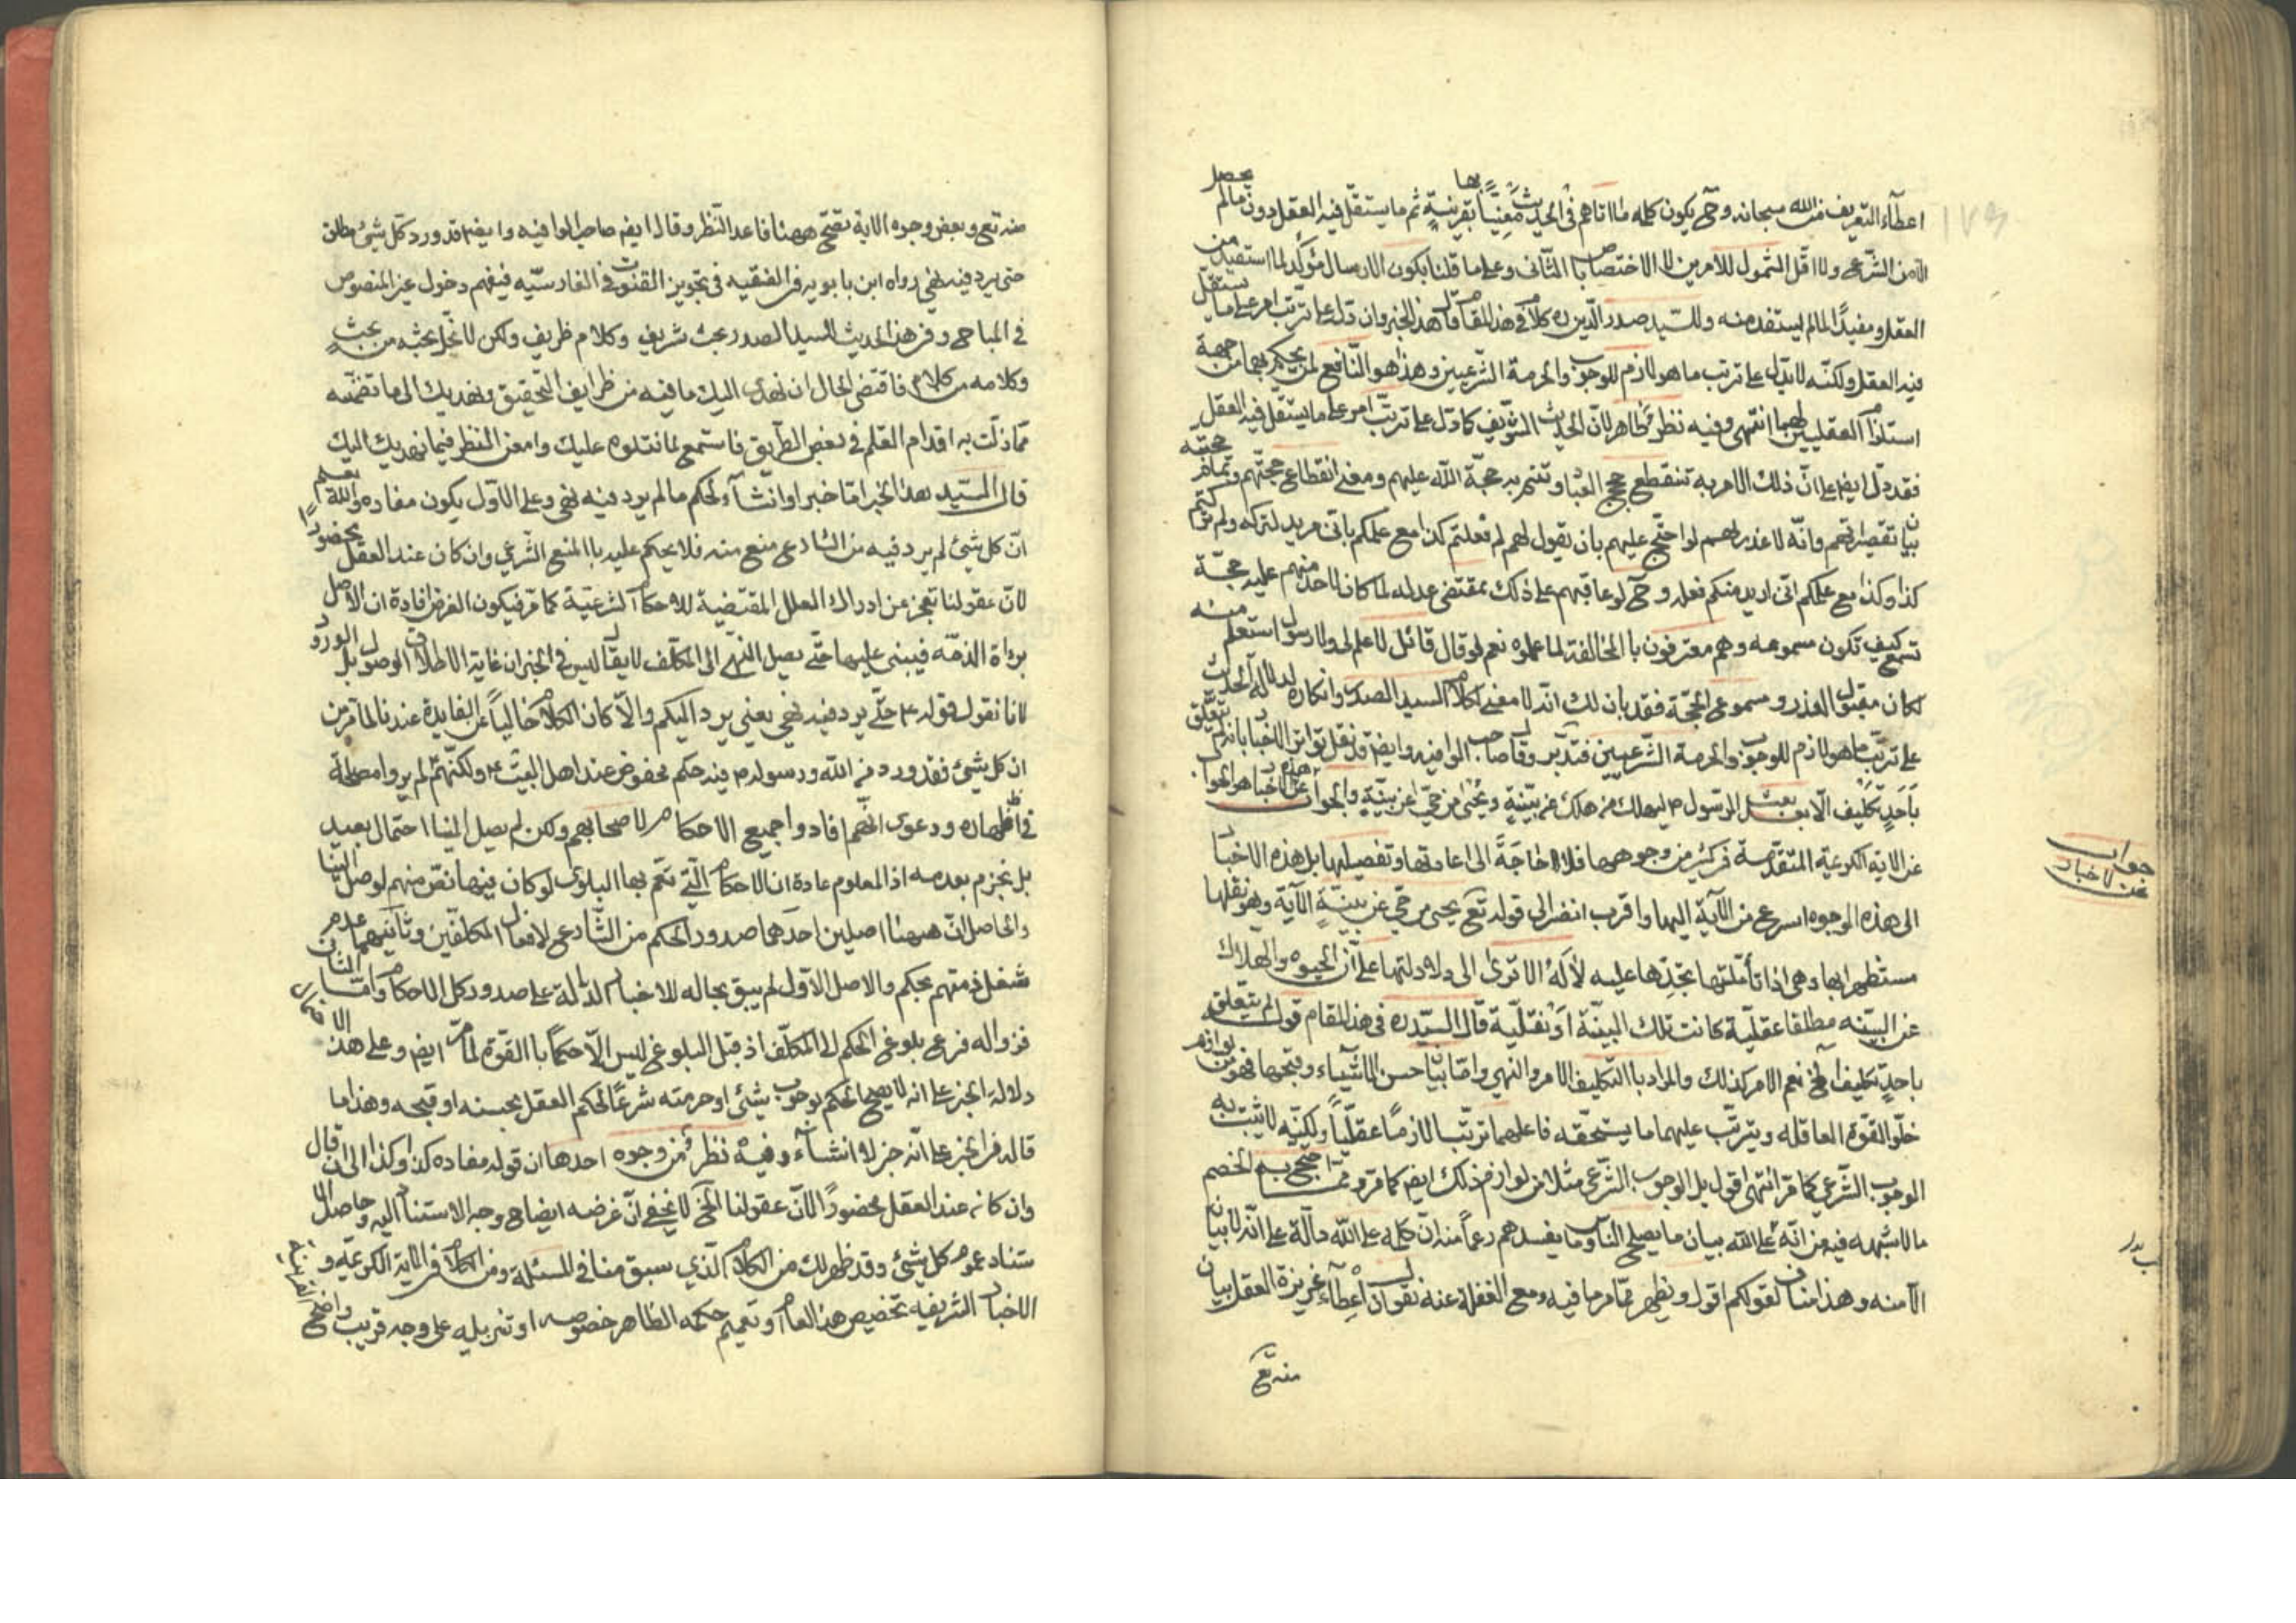 اعطآء التعريف من الله سبحانه وح يكون كلمه ما اتاهم في الحديث معنيّاً بها بقرينة ثم ما يستقلّ فيه العقل دون مالم يحصل
الا من الشرع ولا اقل الشمول للامرين لا الاختصاص با الثاني وعلى ما قلنا يكون الارسال مؤكد لما استفيد من
العقل ومفيدًا لمالم يستفد منه وللسّيد صدر الدّين ره كلام في هذا المقام قال هذا الخبر وان دل على ترتب امر على ما يستقل
فيه العقل ولكنّه لا يدل على ترتب ما هو لازم للوجوب والحرمة الشرعيين وهذا هو النّافع لمن يحكم بهما من جهة
استلزام العقليين لهما انتهى وفيه نظر ظاهر لانّ الحديث الشريف كما دل على ترتب امر على ما يستقل فيه العقل
فقد دل ايض على انّ ذلك الامر به تنقطع حجج العباد وتتم به حجة الله عليهم ومعنى انقطاع حجتهم وتمام حجته
بيان تقصيراتهم وانّه لا عذر لهم لو احتج عليهم بان يقول لهم لم فعلتم كذا مع علمكم باني مريد لتركه ولم تركتم
كذا وكذا مع علمكم انى اريد منكم فعله وح لو عاقبهم على ذلك بمقتضى عدله لما كان لاحد منهم عليه حجّة
تسمع كيف تكون مسموعه وهم معترفون با المخالفة لما علموه نعم لو قال قائل لا علم لى ولا رسول استعلم منه
لكان مقبول العذر ومسموع الحجّة فقد بان لك انّه لا معنى لكلام السيد الصدر وانكاره لدلالة الحديث
على ترتب ما هو لازم للوجوب والحرمة الشّرعيين فتدبّر وقال صاحب الوافيه وايض قد نقل تواتر الاخبار بانه لم يتعلّق
بأحدٍ تكليف الّا بعد بعث الرّسول ليهلك من هلك عن بيّنةٍ ويحيى من حيّ عن بيّنةٍ والجواب عن هذه الاخبار هو الجواب
عن الاية الكريمة المتقدمة في كثير من وجوهها فلا حاجَةً الى اعادتها وتفصيلها بل هذه الاخبار
الى هذه الوجوه اسرع من الآية اليها واقرب انضر الى قوله تع يحيى من حيّ عن بينةٍ الآية وهو نقلها
مستظهرا بها وهى اذا تأملتها تجدها عليه لا لَهُ الا ترى الى دلالتها على أنّ الحيوه والهلاك
عن البيّنه مطلقا عقليّة كانت تلك البينّة أو نقليّة قال السيّد ره في هذا المقام قوله لم يتعلق
باحدٍ تكليف الخ نعم الامر كذلك والمراد با التكليف الامر والنهي وامّا بيان حسن الاشياء وقبحها فهو من لوازم
خلق القوّة العاقله ويترتّب عليهما ما يستحقّه فاعلهما ترتّبا لازمًا عقليّاً ولكنّه لا يثبت به
الوجوب الشرعي كما مرّ انتهى اقول بل الوجوب الشّرعي مثلا من لوازم ذلك ايض كما مرّ وممّا احتج به الخصم
ما لا شبهه فيه من انّه على الله بيان ما يصلح الناس وما يفسدهم زعماً منه انّ كلمة على الله دآلّة على انّه لا بيان
الّا منه وهذا مناف لقولكم اقول ويظهر ممّا مر ما فيه ومع الغفلة عنه نقول ان أعطآء غريزة العقل بيان
منه تع
جواب
عن الاخبار
منه تع وبعض وجوه الاية تقتح ههنا فاعد النّظر وقال ايض صاحب الوافيه وايض قد ورد كل شيئ مطلق
حتى يرد فيه نهي رواه ابن بابويه في الفقيه في تجويز القنوت في الفارسيّه فيفهم دخول غير المنصوص
في المباح وفي هذا الحديث للسيد الصدر بحث شريف وكلام ظريف ولكن لا نخل بحثه من بحثٍ
وكلامه من كلام فاقتضى الحال ان نهدى اليك ما فيه من ظرايف التّحقيق ونهديك الى ما تضمّنه
ممّا ذلّت به اقدام القلم في بعض الطّريق فاستمع لما نتلوه عليك وامعن النظر فيما نهديك اليك
قال السيّد هذا الخبر امّا خبر او انشآء لحكم مالم يرد فيه نهى وعلى الاوّل يكون مفاده والله يعلم
انّ كل شيئ لم يرد فيه من الشارع منع منه فلا يحكم عليه با المنع الشّرعي وان كان عند العقل محضورًا
لانّ عقولنا تعجز عن ادراك العلل المقتضية للاحكام الشرعيّة كما مرّ فيكون الغرض افادة ان الاصل
براءة الذمّه فيبنى عليها حتّى يصل النّهى الى المكلف لا يقال ليس في الخبر ان غاية الاطلاق الوصول بل الورود
لانا نقول قوله حتّى يرد فيه نهي يعني يرد اليكم والّا كان الكلام خالياً عن الفايدة عندنا لما مرّ من
ان كل شيئ فقد ورد من الله ورسوله فيه حكم محفوض عند اهل البيت ولكنّهم لم يروا مصلحة
في اظهاره ودعوى انّهم افادوا جميع الاحكام لاصحابهم ولكن لم يصل الينا احتمال بعيد
بل نجزم بعدمه اذ المعلوم عادة ان الاحكام الّتي تعم بها البلوى لو كان فيها نصّ منهم لوصل الينا
والحاصل انّ ههنا اصلين احدهما صدور الحكم من الشّارع لافعال المكلفين وثانيهما عدم
شغل ذمتهم بحكم والاصل الاوّل لم يبق بحاله للاخبار الدالّة على صدور كل الاحكام وامّا الثاني
فزواله فرع بلوغ الحكم الى المكلّف اذ قبل البلوغ ليس الّا حكماً با القوّة لما مرّ ايض وعلى هذا
دلالة الخبر على انه لا يصح الحكم بوجوب شيئ او حرمته شرعًا لحكم العقل بحسنه او قبحه وهذا ما
قاله في الخبر على انّه خبر لا انشاء وفيه نظر من وجوه احدها ان قوله مفاده كذا وكذا الى ان قال
وان كان عند العقل محضورًا لانّ عقولنا الخ لا يخفى انّ غرضه ايضاح وجه الاستناد اليه وحاصل الا
ستناد عموم كل شيئ وقد ظهر لك من الكلام الّذي سبق منّا في المسئلة ومن الكلام في الاية الكريمة و
الاخبار الشريفه تخصيص هذا العام او تعميم حكمه الظاهر خصوصه او تنزيله على وجه قريب واضح